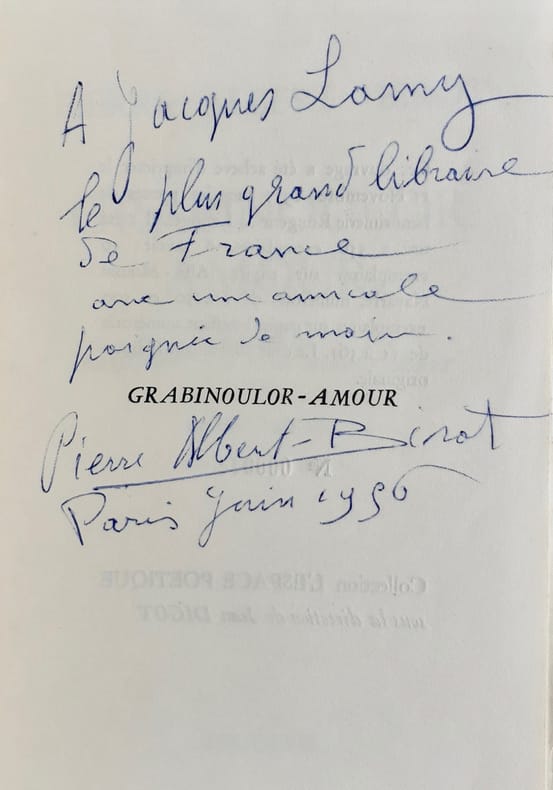 A Jacques Lamy
le plus grand libraire
de France
avec une amicale
poignée de main.
GRABINOULOR-AMOUR
Pierre Albert-Birot
Paris Juin 1956
Collection L'ESPACE POETIQUE
sous la direction de Jean DIGOT